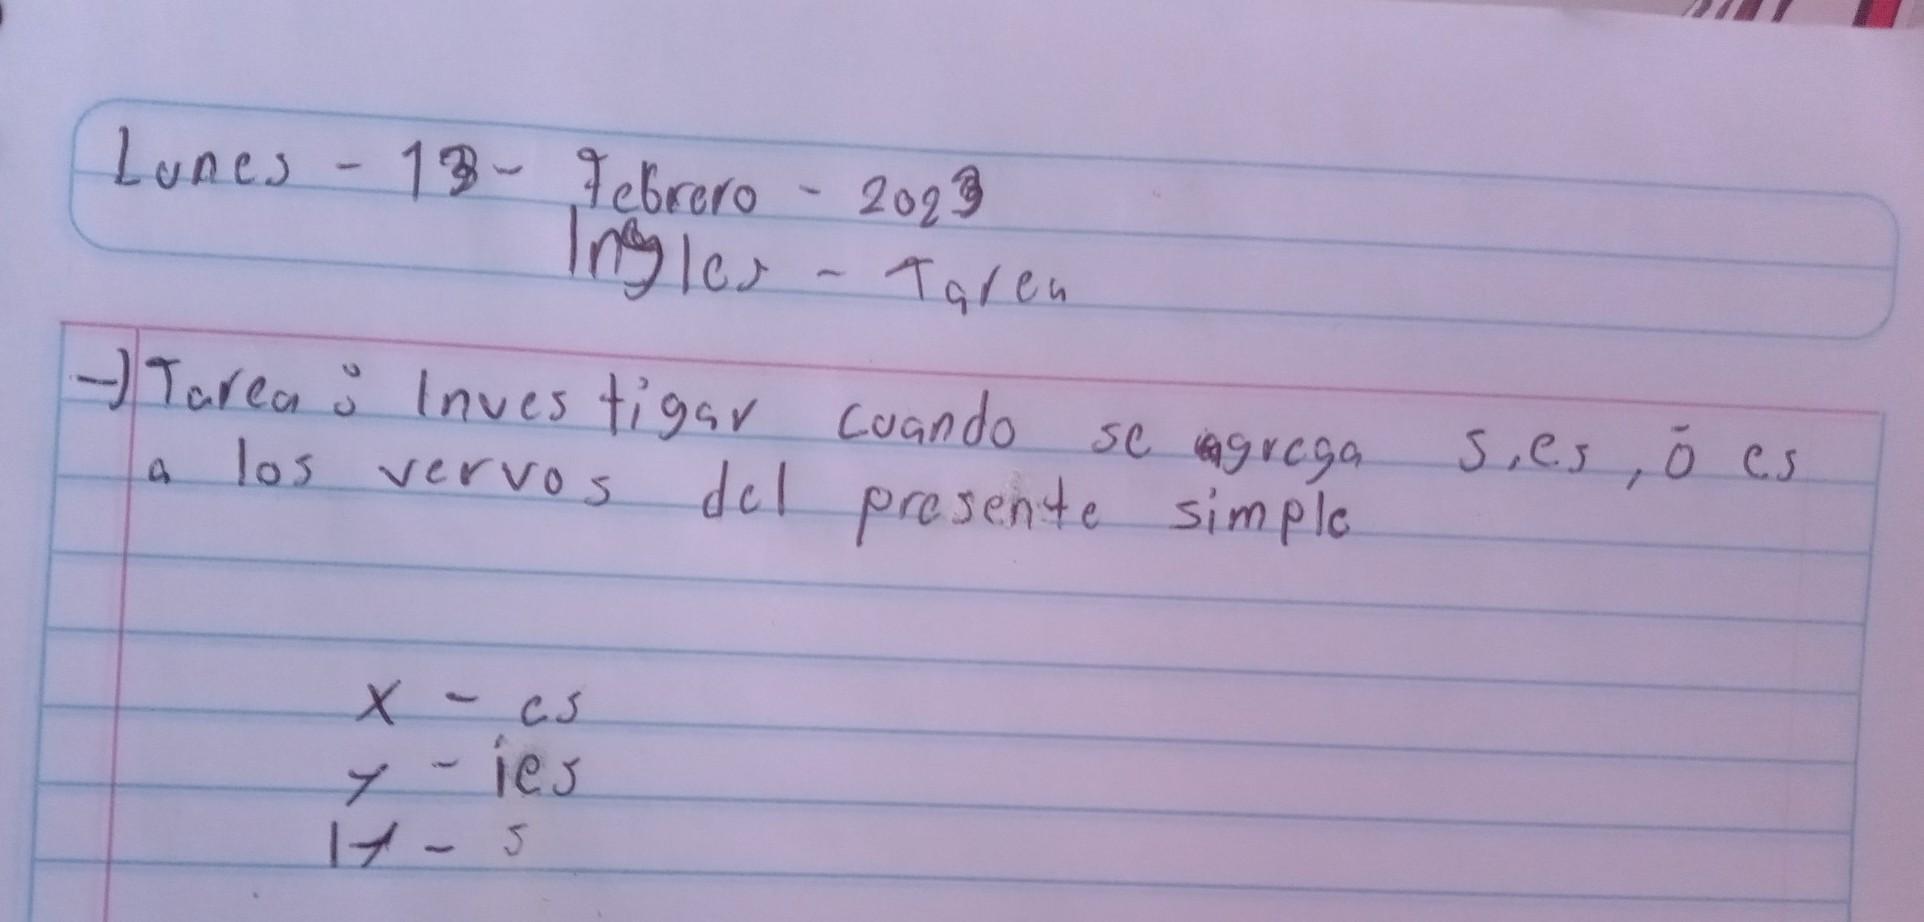 Lunes - 13 - Febrero - 2023
Ingles - Tarea
→ Tarea: Investigar cuando se agrega s, es, ó es
a los vervos del presente simple
x - es
y - ies
- s